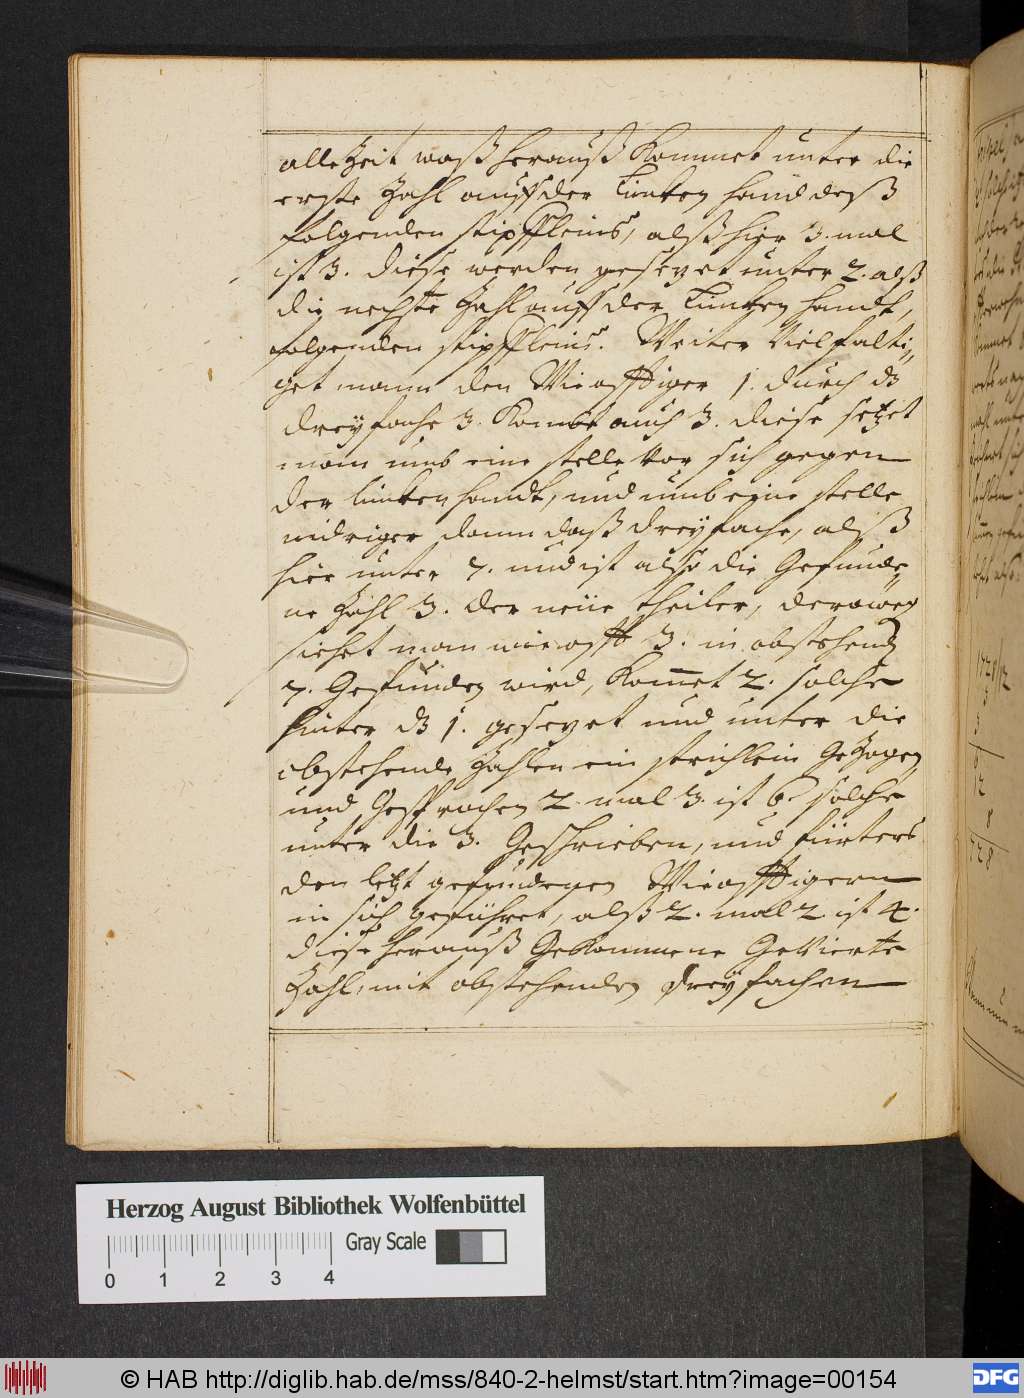 alle Zeit waß herauß kommet unter die
erste Zahl auff der Lincken hand deß
folgenden stipffleins, alß hier 3. mal
ist 3. diese werden gesezet unter 2. alß
die nechste Zahl auff der Lincken handt,
folgenden stipffleins. Weiter Vielfälti„
get mann den Wieofftiger 1. durch dz
dreyfache 3. Kombt auch 3. diese setzet
man umb eine stelle vor sich gegen
der lincken handt, und umb eine stelle
nidriger dann daß dreyfache, alß
hier unter 7. und ist also die Gefunde„
ne Zahl 3. der neüe theiler, deroweg
siehet man wie offt 3. in obstehend
7. Gefunden wird, Kommet 2. solche
hinter dz 1. gesezet und unter die
obstehende Zahlen ein strichlein Gezogen,
und Gesprochen 2. mal 3. ist 6. solche
unter die 3. Geschrieben, und fürters
den letzt gefundenen Wieofftigern
in sich geführet, alß 2. mal 2 ist 4.
diese herauß Gekommene GeVierte
Zahl, mit obstehenden dreyfachen
1728/12
3
3
6
12
8
728
Herzog August Bibliothek Wolfenbüttel
Gray Scale
0 1 2 3 4
© HAB http://diglib.hab.de/mss/840-2-helmst/start.htm?image=00154
DFG